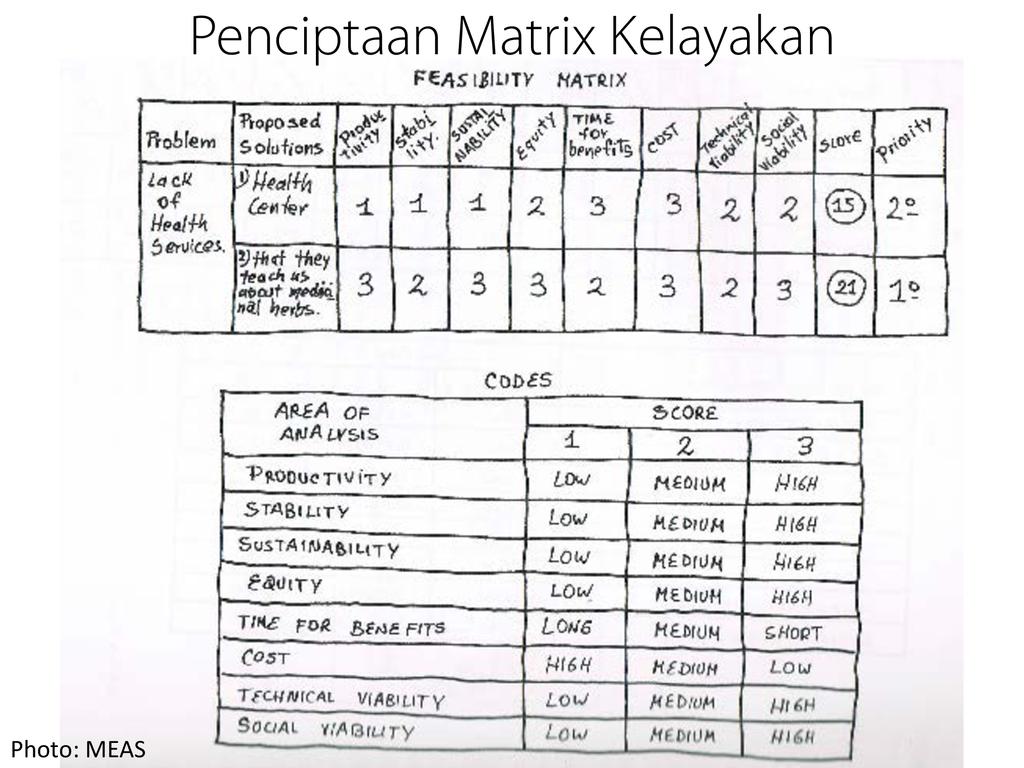 Penciptaan Matrix Kelayakan
FEASIBILITY MATRIX
Problem
Proposed
Solutions
Produc
tivity
Stabi
lity.
SUSTAI
NABILITY
Equity
TIME
for
benefits
COST
Technical
Viability
Social
Viability
SCORE
Priority
Lack
of
Health
Services.
1) Health
Center
1
1
1
2
3
3
2
2
15
2º
2) that they
teach us
about medici
nal herbs.
3
2
3
3
2
3
2
3
21
1º
CODES
AREA OF
ANALYSIS
SCORE
1 2 3
PRODUCTIVITY LOW MEDIUM HIGH
STABILITY LOW MEDIUM HIGH
SUSTAINABILITY LOW MEDIUM HIGH
EQUITY LOW MEDIUM HIGH
TIME FOR BENEFITS LONG MEDIUM SHORT
COST HIGH MEDIUM LOW
TECHNICAL VIABILITY LOW MEDIUM HIGH
SOCIAL VIABILITY LOW MEDIUM HIGH
Photo: MEAS